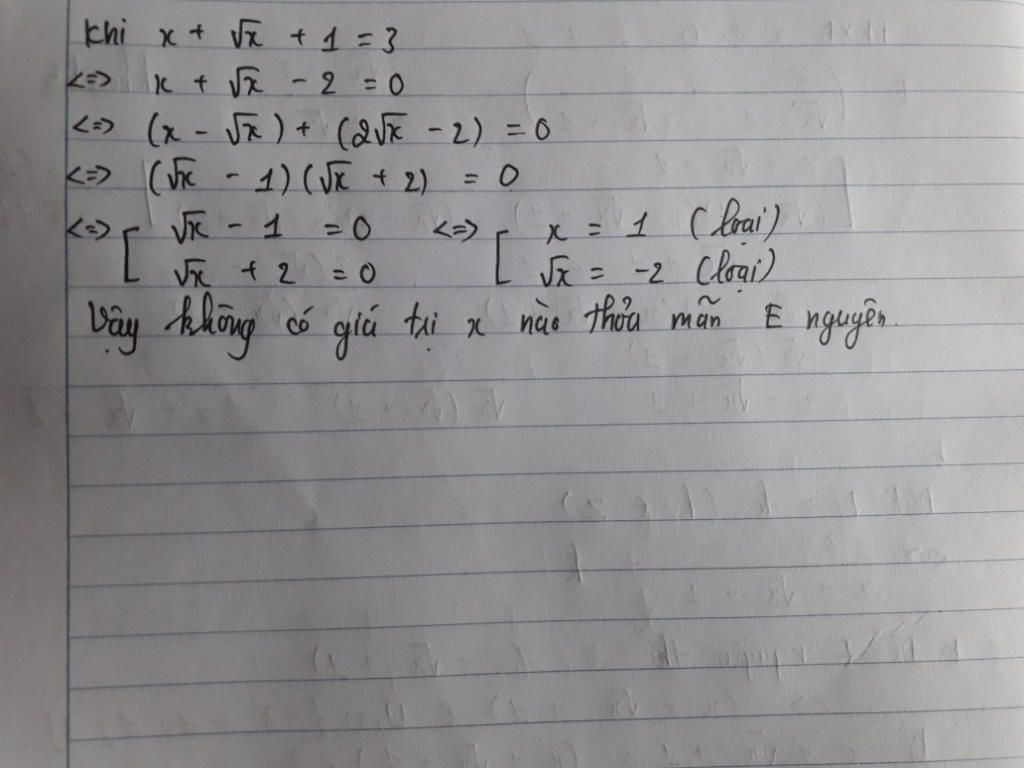 Khi x + √x + 1 = 3
<=> x + √x - 2 = 0
<=> (x - √x) + (2√x - 2) = 0
<=> (√x - 1)(√x + 2) = 0
<=> [ √x - 1 = 0 <=> [ x = 1 (loại)
√x + 2 = 0 √x = -2 (loại)
Vậy không có giá trị x nào thỏa mãn E nguyên.